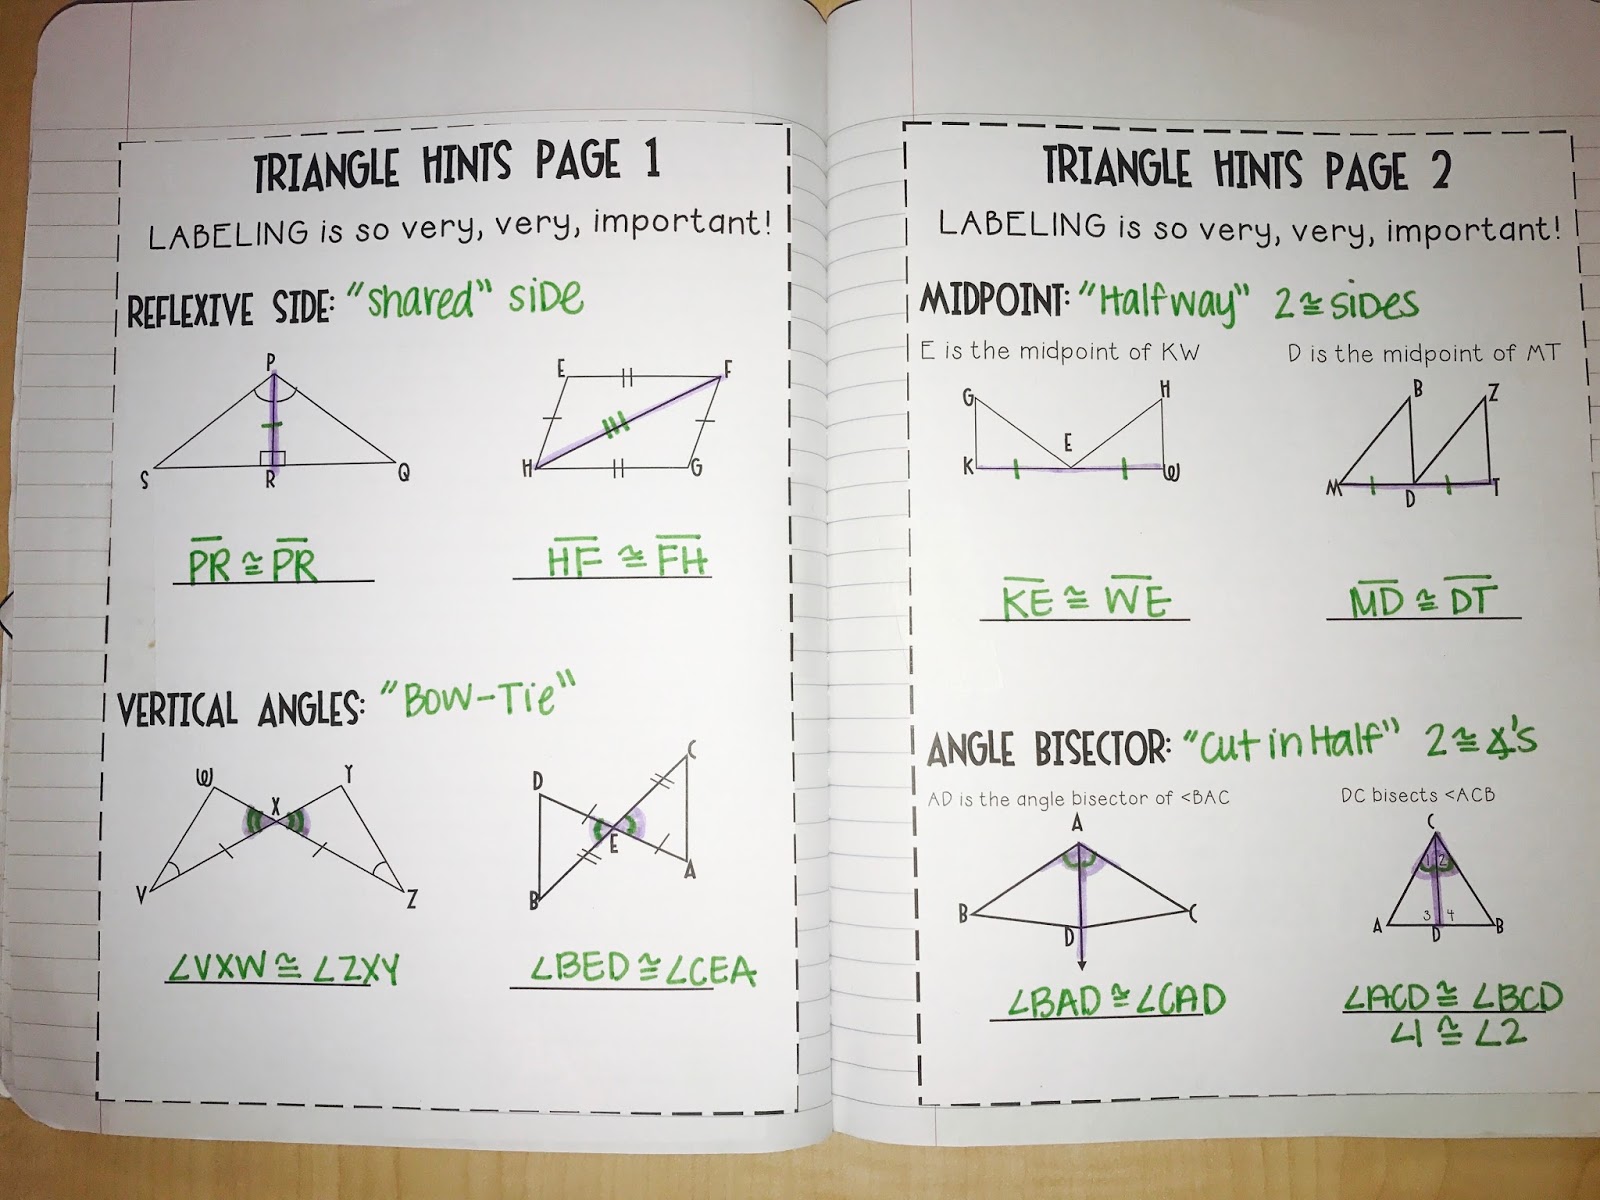 TRIANGLE HINTS PAGE 1
LABELING is so very, very, important!
REFLEXIVE SIDE: "shared" side
P
S
R
Q
E
F
H
G
PR ≅ PR
HF ≅ FH
VERTICAL ANGLES: "Bow-Tie"
W
Y
X
V
Z
C
D
E
A
B
∠VXW ≅ ∠ZXY
∠BED ≅ ∠CEA
TRIANGLE HINTS PAGE 2
LABELING is so very, very, important!
MIDPOINT: "Halfway" 2 ≅ sides
E is the midpoint of KW
D is the midpoint of MT
G
H
E
K
W
B
Z
M
D
T
KE ≅ WE
MD ≅ DT
ANGLE BISECTOR: "cut in Half" 2 ≅ ∡'s
AD is the angle bisector of <BAC
DC bisects <ACB
A
B
C
D
C
1 2
3 4
A
D
B
∠BAD ≅ ∠CAD
∠ACD ≅ ∠BCD
∠1 ≅ ∠2